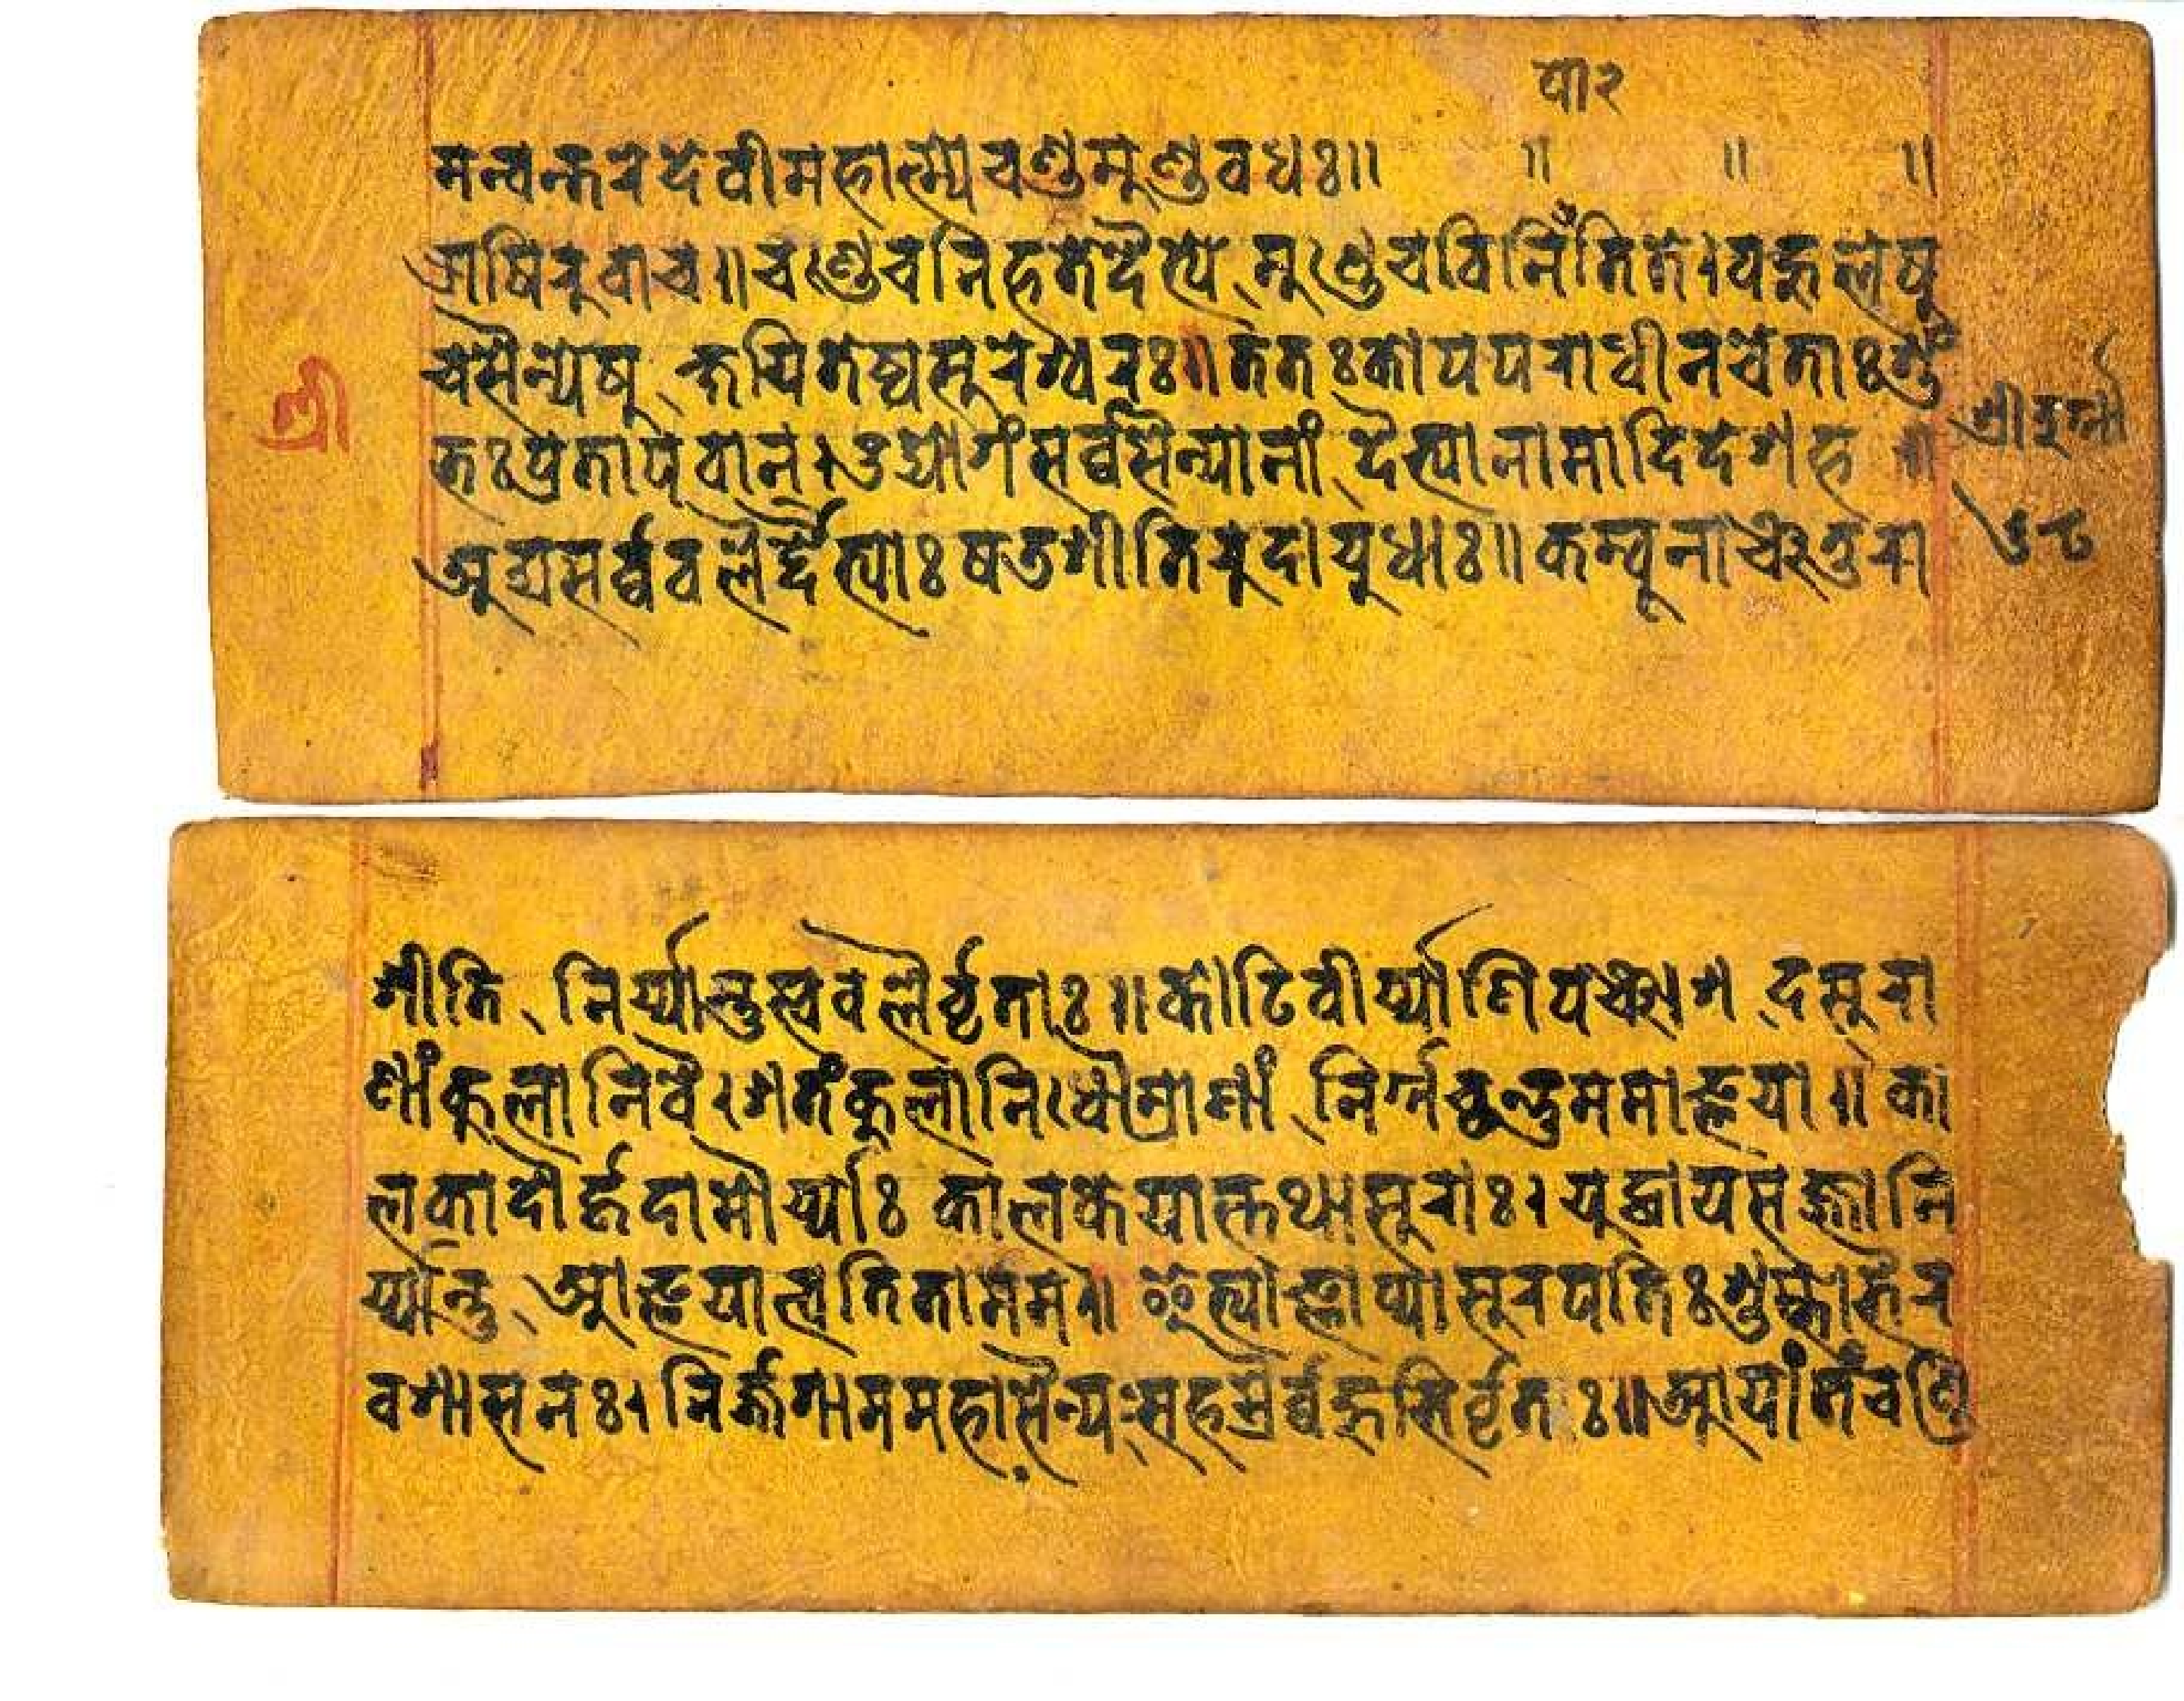 पा२
मन्वन्तरेदेवीमहात्म्येचण्डमुण्डवधः॥ ॥ ॥ ॥
ऋषिरुवाच॥चण्डेचनिहतेदैत्ये,मुण्डेचविनितिते।वहुलेषु
चसैन्येषु,क्षयितेष्वसुरेश्वरः॥ततःकोपपराधीनचेताःशुं
भःप्रतापवान्।उद्योगंसर्व्वसैन्यानां,दैत्यानामादिदेशह॥
श्रीदुर्गा
अद्यसर्व्ववलैर्द्दैत्याःषडशीतिरुदायुधाः॥कम्वूनाञ्चतुरा
७८
शीति,निर्य्यान्तुस्ववलैर्वृताः॥कोटिवीर्य्याणिपञ्चाश,दसुरा
णांकुलानिवै।शतंकुलानिधौम्राणां,निर्गच्छन्तुममाज्ञया॥का
लकादौर्हृदामौर्य्याः कालकेयास्तथासुराः।युद्धायसज्जानि
र्य्यान्तु,आज्ञयात्वरितामम॥इत्याज्ञाप्यासुरपतिःशुम्भोभैर
वशासनः।निर्ज्जगाममहासैन्यःसहस्रैर्व्वहुभिर्वृतः॥आयांतंचण्डि